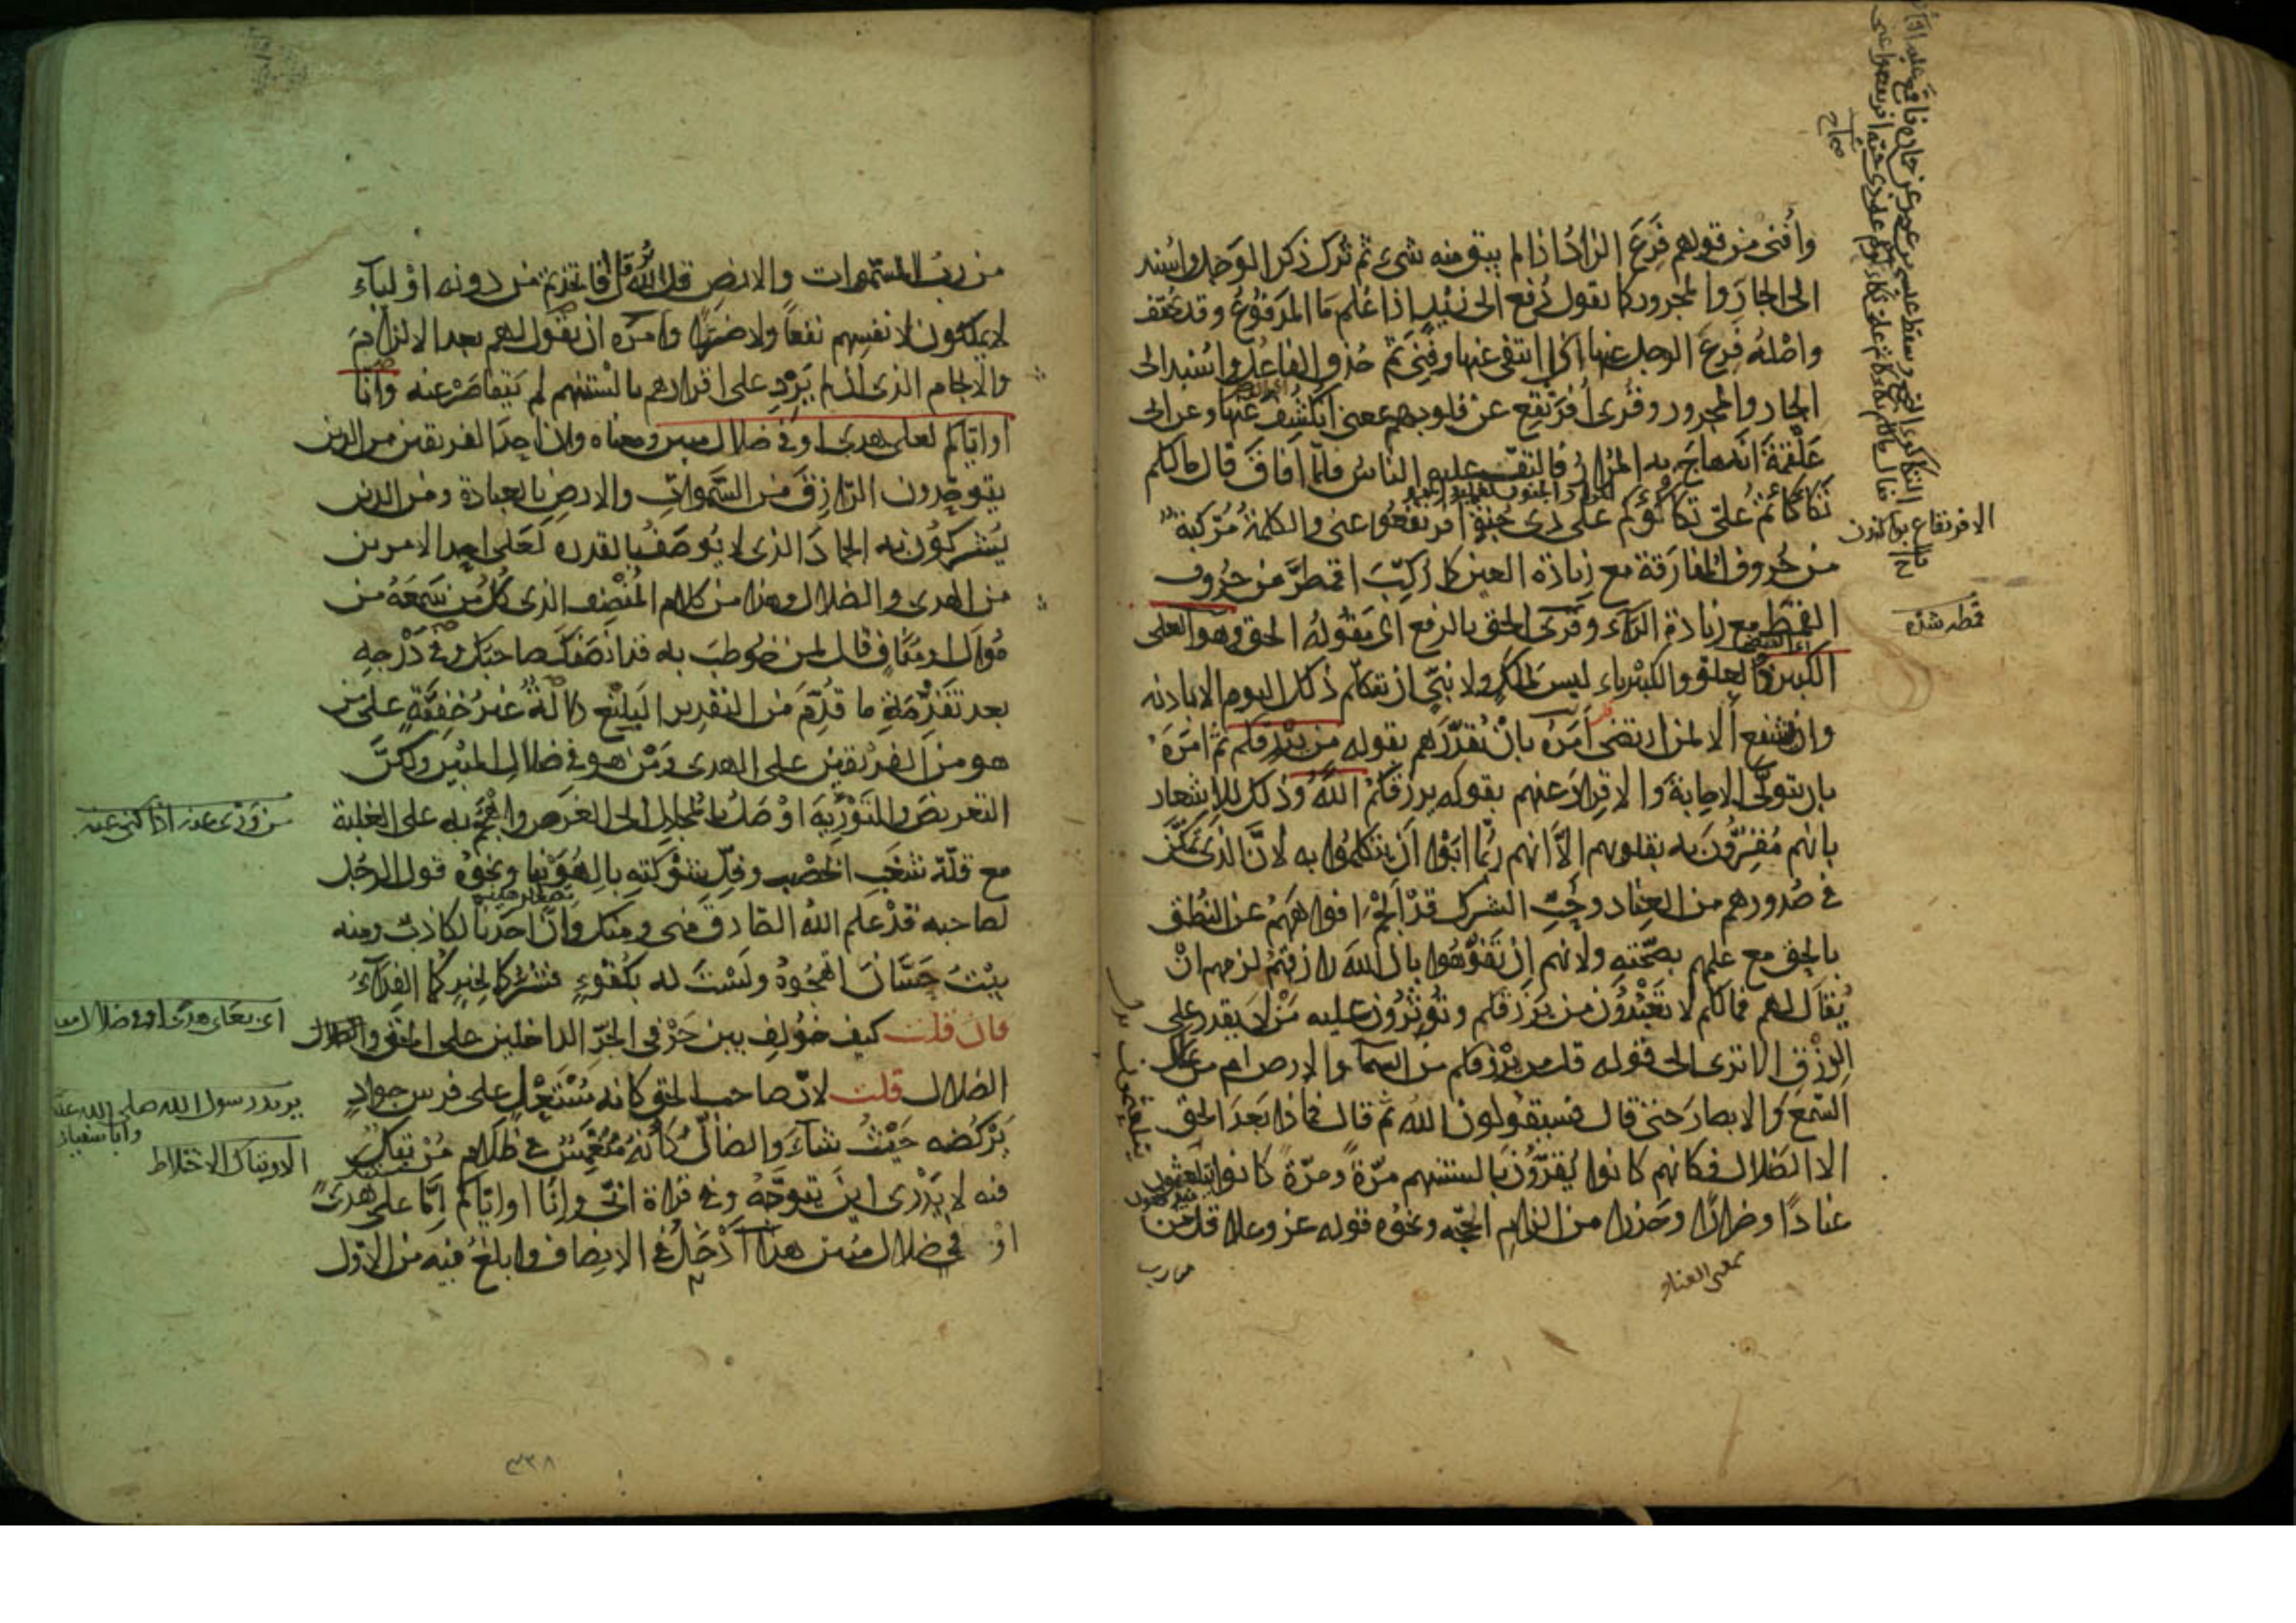 وأفنى من قولهم فرغ الزاد اذا لم يبق منه شىء ثم ترك ذكر الوجل واسند
الى الجار والمجرور كما تقول دفع الى زيد اذا علم ما المدفوع وقد تخفف
واصله فرغ الوجل عنها اى انتفى عنها وفنى ثم حذف الفاعل واسند الى
الجار والمجرور وقرى افرنقع عن قلوبهم بمعنى انكشف عنها وعن ابى
علقمة انه هاج به المرار فالتف عليه الناس فلما افاق قال مالكم
تكأكأتم على تكأكؤكم على ذى جنة افرنقعوا عنى والكلمة مركبة
من حروف المفارقة مع زيادة العين كما ركب اقمطر من حروف
القمط مع زيادة الراء وقرى الحق بالرفع اى مقوله الحق وهو العلى
الكبير ذو العلو والكبرياء ليس لملك ولا نبى ان يتكلم ذلك اليوم الا باذنه
وان يشفع الا لمن ارتضى امره بان يقررهم بقوله من يرزقكم ثم امره
بان يتولى الاجابة والاقرار عنهم بقوله يرزقكم الله وذلك للاشعار
بانهم مقرون به بقلوبهم الا انهم ربما ابوا ان يتكلموا به لان الذى تمكن
فى صدورهم من العناد وحب الشرك قد الجم افواههم عن النطق
بالحق مع علمهم بصحته ولانهم ان تفوهوا بان الله رازقهم لزمهم ان
يقال لهم فما لكم لا تعبدون من يرزقكم وتؤثرون عليه من لا يقدر على
الرزق الا ترى الى قوله قل من يرزقكم من السماء والارض ام من يملك
السمع والابصار حتى قال فسيقولون الله ثم قال فماذا بعد الحق
الا الضلال فكانهم كانوا يقرون بالسنتهم مرة ومرة كانوا يتلعثمون
عنادا وضرارا وحذرا من الزام الحجة ونحوه قوله عز وعلا قل من
من رب
بمعنى العناد
الافرنقاع
قمطر شده
من رب السموات والارض قل الله قل افاتخذتم من دونه اولياء
لا يملكون لانفسهم نفعا ولا ضرا وامره ان يقول لهم بعد الالزام
والالجام الذى ان لم يزد على اقرارهم بالسنتهم لم يتقاصر عنه وانا
او اياكم لعلى هدى او فى ضلال مبين ومعناه وان احد الفريقين من الذين
يتوحدون الرازق من السموات والارض بالعبادة ومن الذين
يشركون به الجماد الذى لا يوصف بالقدرة لعلى احد الامرين
من الهدى والضلال وهذا من كلام المنصف الذى كل من سمعه من
موال او مناف قال لمن خوطب به قد انصفك صاحبك وفى درجه
بعد تقدمة ما قدم من التقرير البليغ دلالة غير خفية على من
هو من الفريقين على الهدى ومن هو فى ضلال المبين ولكن
التعريض والتورية اوصل بالمجادل الى الغرض واهجم به على الغلبة
مع قلة شغب الخصم وفل شوكته بالهوينا ونحوه قول الرجل
لصاحبه قد علم الله الصادق منى ومنك وان احدنا لكاذب ومنه
بيت حسان اتهجوه ولست له بكفوء فشركما لخيركما الفداء
فان قلت كيف خولف بين حرفى الجر الداخلين على الحق والضلال
الضلال قلت لان صاحب الحق كانه مستعل على فرس جواد
يركضه حيث شاء والضال كأنه منغمس فى ظلام مرتبك
فيه لا يدرى اين يتوجه وفى قراءة ابى وانا او اياكم اما على هدى
او فى ضلال مبين هذا ادخل فى الانصاف وابلغ فيه من الاول
من ورى عنه اذا كنى عنه
يريد رسول الله صلى الله عليه
وابا سفيان
الارتباك الاختلاط
٣٣٨